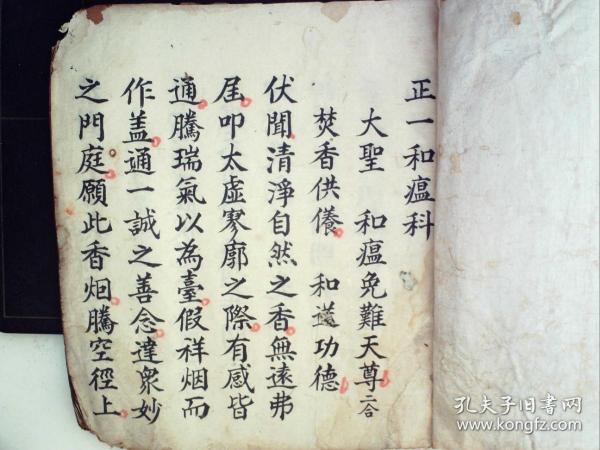 正一和瘟科
大聖 和瘟免難天尊 二合
焚香供養 和道功德
伏聞清淨自然之香無遠弗
届叩太虛寥廓之際有感皆
通騰瑞氣以為臺假祥烟而
作盖通一誠之善念達衆妙
之門庭願此香烟騰空徑上
孔夫子旧书网
www.kongfz.com